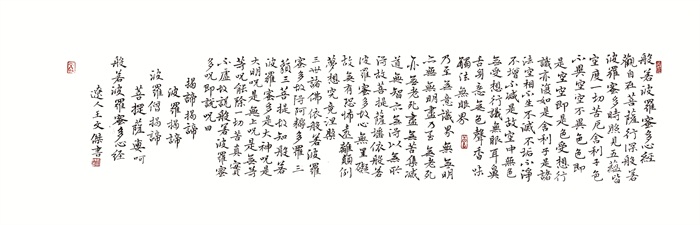 般若波羅蜜多心經
觀自在菩薩行深般若
波羅蜜多時照見五蘊皆
空度一切苦厄舍利子色
不異空空不異色色即
是空空即是色受想行
識亦復如是舍利子是諸
法空相不生不滅不垢不淨
不增不減是故空中無色
無受想行識無眼耳鼻
舌身意無色聲香味
觸法無眼界
乃至無意識界無無明
亦無無明盡乃至無老死
亦無老死盡無苦集滅
道無智亦無得以無所
得故菩提薩埵依般若
波羅蜜多故心無罣礙
故無有恐怖遠離顛倒
夢想究竟涅槃
三世諸佛依般若波羅
蜜多故得阿耨多羅三
藐三菩提故知般若
波羅蜜多是大神呪是
大明呪是無上呪是無等
等呪能除一切苦真實
不虛故說般若波羅蜜
多呪即說呪曰
揭諦揭諦
波羅揭諦
波羅僧揭諦
菩提薩婆呵
般若波羅蜜多心經
遼人王文傑書